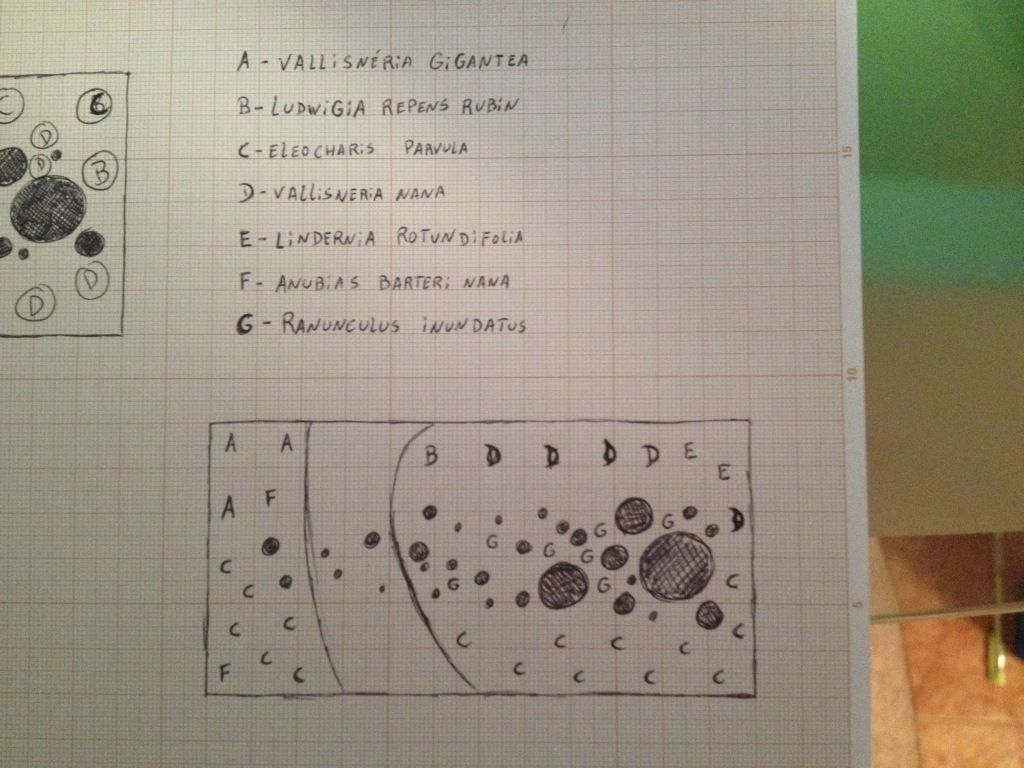 A - VALLISNÉRIA GIGANTEA
B - LUDWIGIA REPENS RUBIN
C - ELEOCHARIS PARVULA
D - VALLISNERIA NANA
E - LINDERNIA ROTUNDIFOLIA
F - ANUBIAS BARTERI NANA
G - RANUNCULUS INUNDATUS
C G
D
D B
D
D
15
10
5
A A B D D D D E
E
A F G G D
G G
C C G G C
C C C C C C C
C C C C C
F C